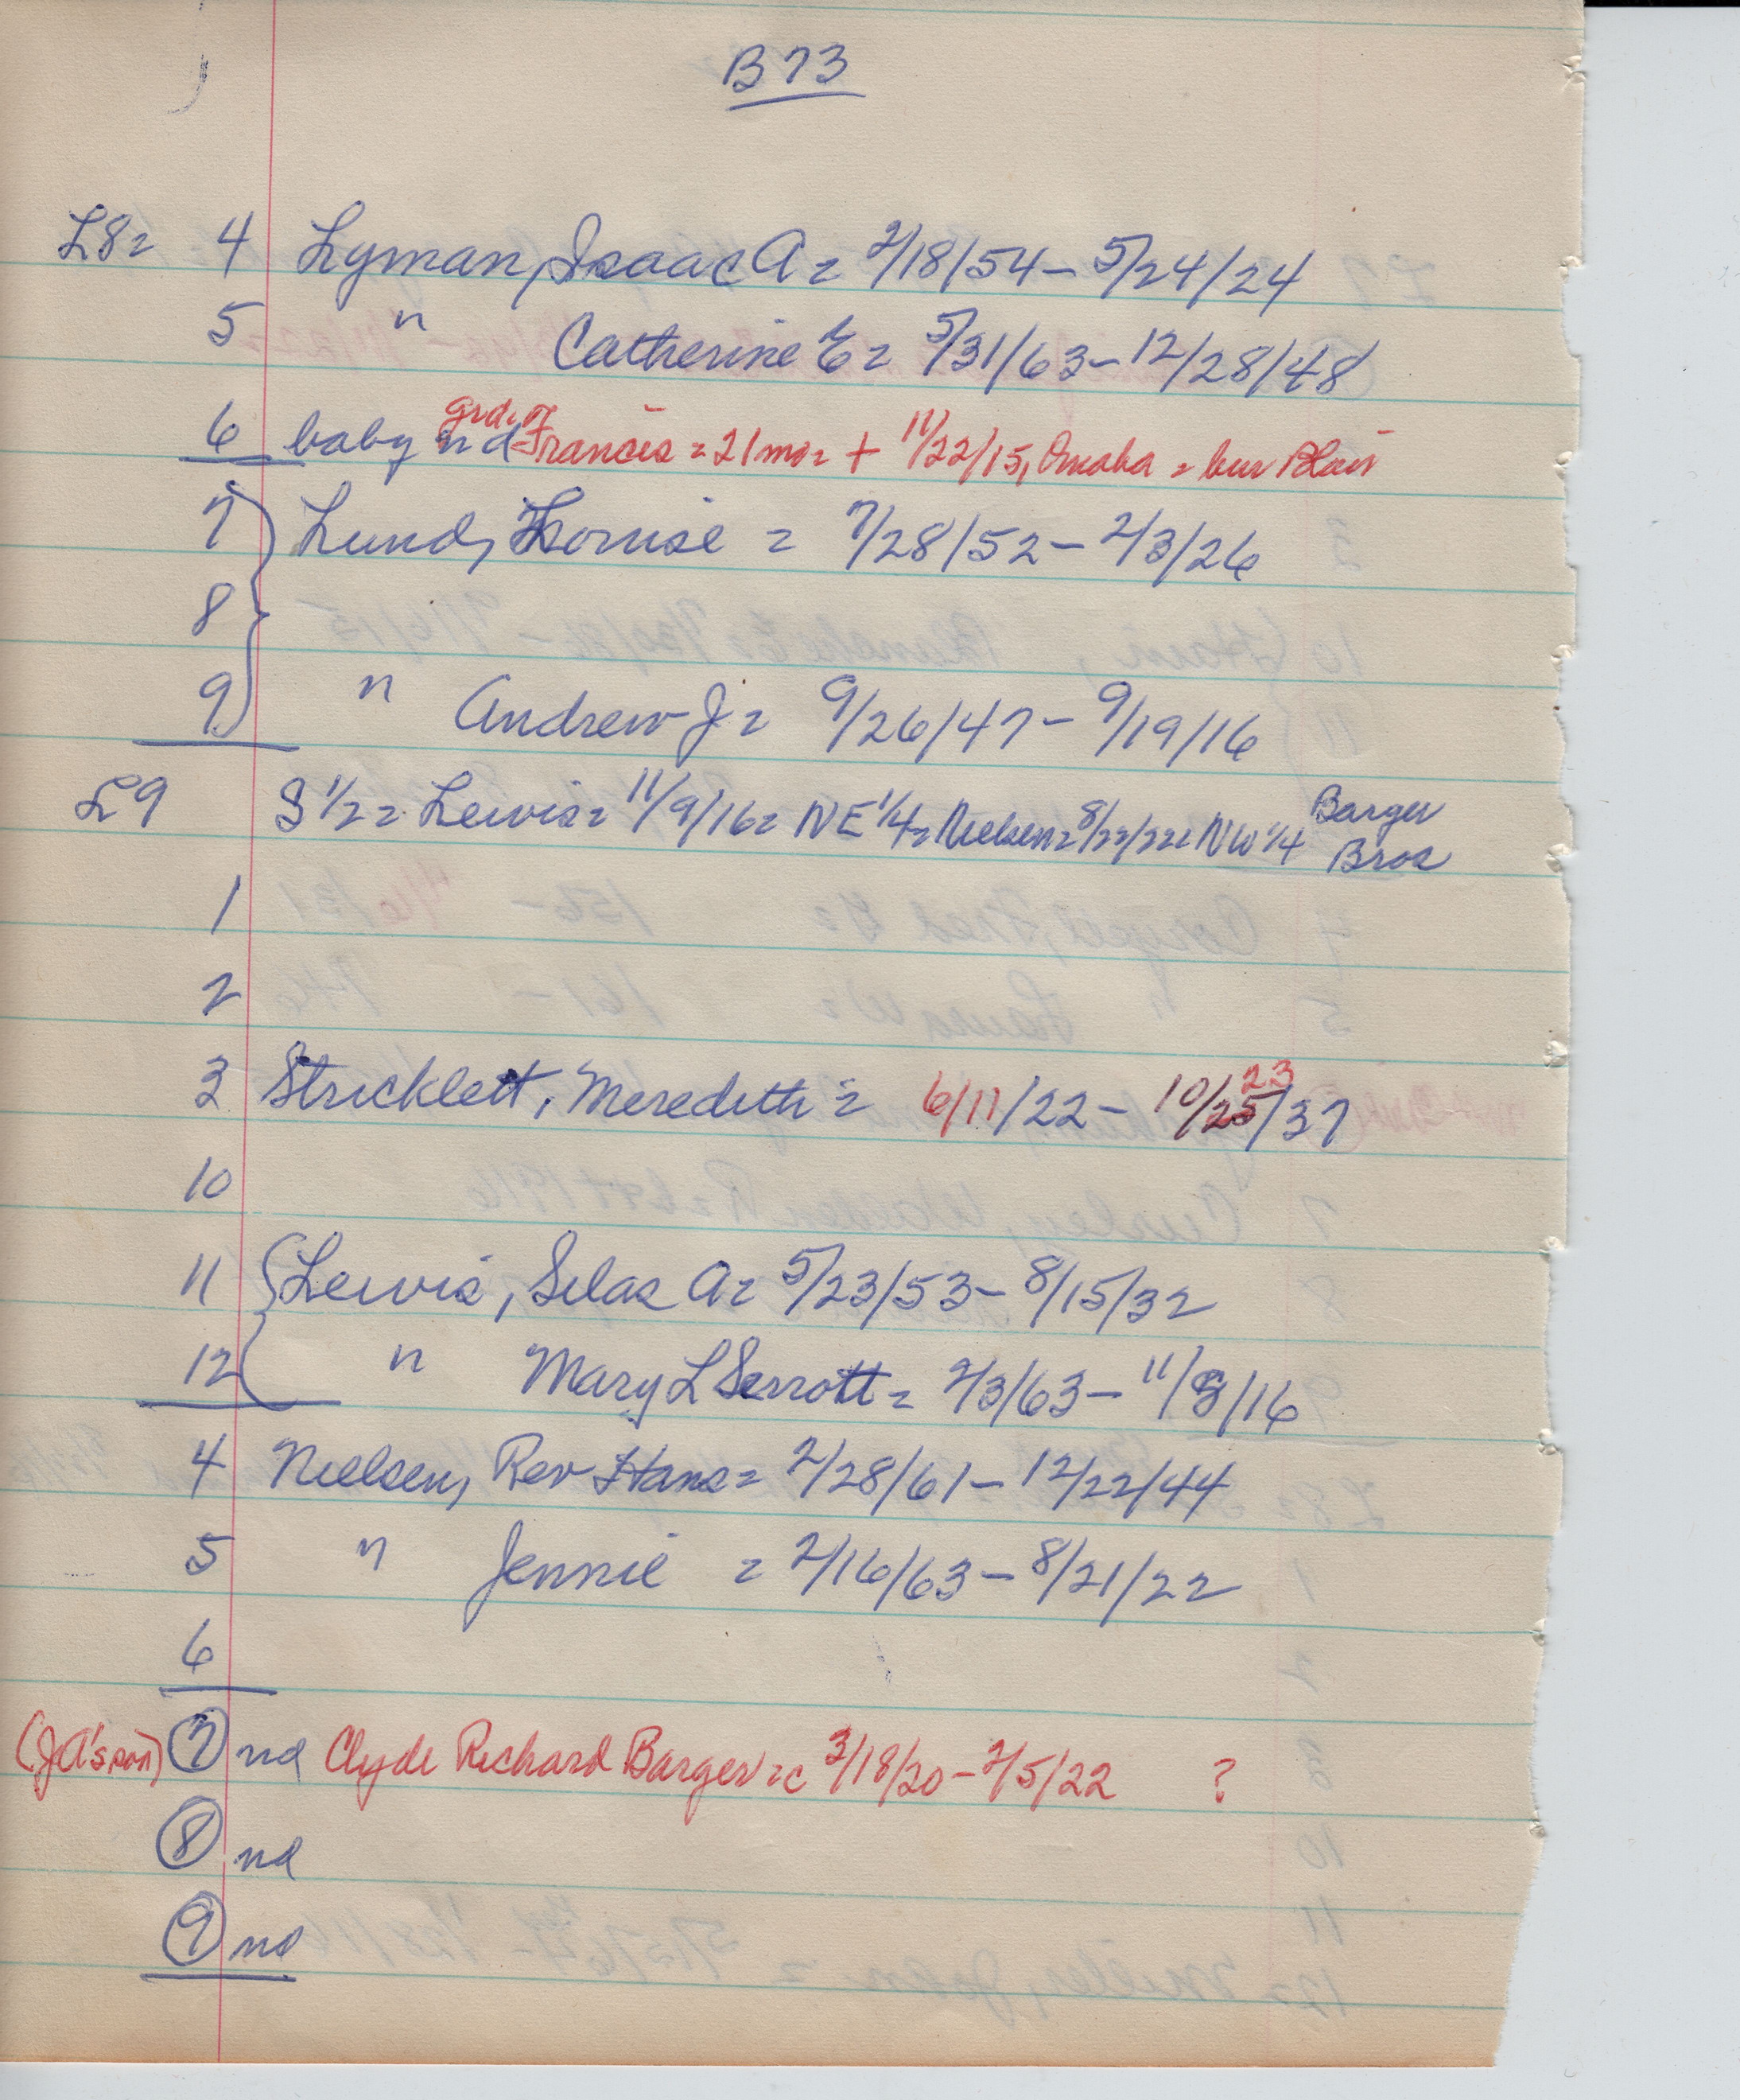 B73
L8= 4 Lyman, Isaac A = 2/18/54 - 5/24/24
5 " Catherine E = 5/31/63 - 12/28/48
grd. of
6 baby nd Francis = 21 mo = + 11/22/15, Omaha = bur Blair
7 Lund, Louise = 7/28/52 - 2/3/26
8
9 " Andrew J = 9/26/47 - 9/19/16
L9 S 1/2 = Lewis = 11/9/16 = NE 1/4 = Nielsen = 8/22/22 = NW 1/4 Barger Bros
1
2
3 Stricklett, Meredith = 6/11/22 - 10/25/37
23
10
11 Lewis, Silas A = 5/23/53 - 8/15/32
12 " Mary L Serrott = 2/3/63 - 11/8/16
4 Nielsen, Rev Hans = 2/28/61 - 12/22/44
5 " Jennie = 2/16/63 - 8/21/22
6
(JA's son) 7 nd Clyde Richard Barger = c 3/18/20 - 2/5/22 ?
8 nd
9 nd